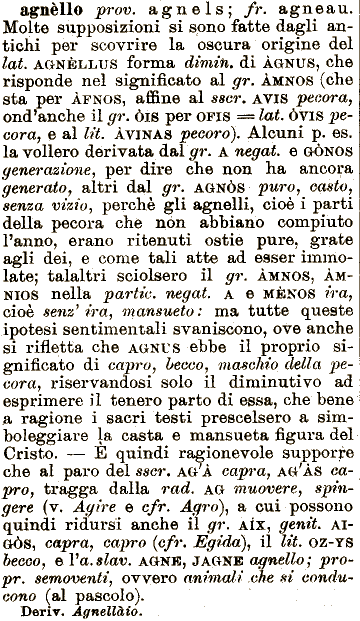 agnèllo prov. agnels; fr. agneau.
Molte supposizioni si sono fatte dagli an-
tichi per scovrire la oscura origine del
lat. AGNÈLLUS forma dimin. di ÀGNUS, che
risponde nel significato al gr. ÀMNOS (che
sta per ÀFNOS, affine al sscr. AVIS pecora,
ond'anche il gr. ÒIS per OFIS = lat. ÒVIS pe-
cora, e al lit. ÀVINAS pecoro). Alcuni p. es.
la vollero derivata dal gr. A negat. e GÒNOS
generazione, per dire che non ha ancora
generato, altri dal gr. AGNÒS puro, casto,
senza vizio, perchè gli agnelli, cioè i parti
della pecora che non abbiano compiuto
l'anno, erano ritenuti ostie pure, grate
agli dei, e come tali atte ad esser immo-
late; talaltri sciolsero il gr. ÀMNOS, ÀM-
NIOS nella partic. negat. A e MÈNOS ira,
cioè senz' ira, mansueto: ma tutte queste
ipotesi sentimentali svaniscono, ove anche
si rifletta che AGNUS ebbe il proprio si-
gnificato di capro, becco, maschio della pe-
cora, riservandosi solo il diminutivo ad
esprimere il tenero parto di essa, che bene
a ragione i sacri testi prescelsero a sim-
boleggiare la casta e mansueta figura del
Cristo. — È quindi ragionevole supporre
che al paro del sscr. AG'À capra, AG'ÀS ca-
pro, tragga dalla rad. AG muovere, spin-
gere (v. Agire e cfr. Agro), a cui possono
quindi ridursi anche il gr. AÍX, genit. AI-
GÒS, capra, capro (cfr. Egida), il lit. OZ-YS
becco, e l'a. slav. AGNE, JAGNE agnello; pro-
pr. semoventi, ovvero animali che si condu-
cono (al pascolo).
Deriv. Agnellàio.